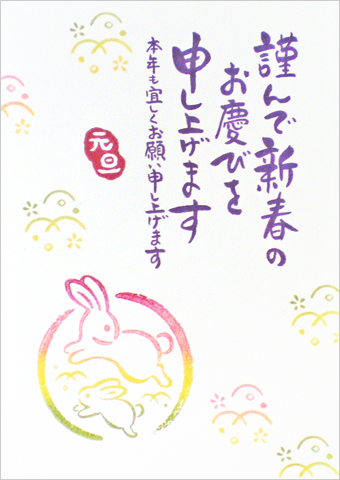 謹んで新春の
お慶びを
申し上げます
本年も宜しくお願い申し上げます
元旦